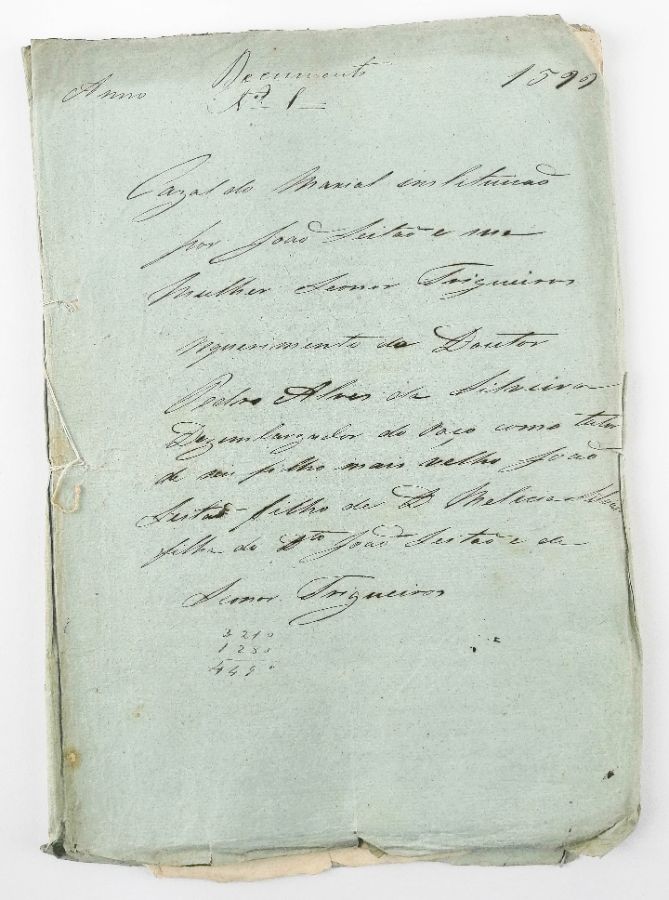 Documento
Anno Nº 1 1599
Cazal do Maxial instituição
por João Leitão e sua
Mulher Leonor Trigueiros
requerimento do Doutor
Pedro Alves da Silveira
Dezembargador do Paço como tutor
de seu filho mais velho João
Leitão filho de D.
filha do Dto João Leitão e de
Leonor Trigueiros
3210
1280
449